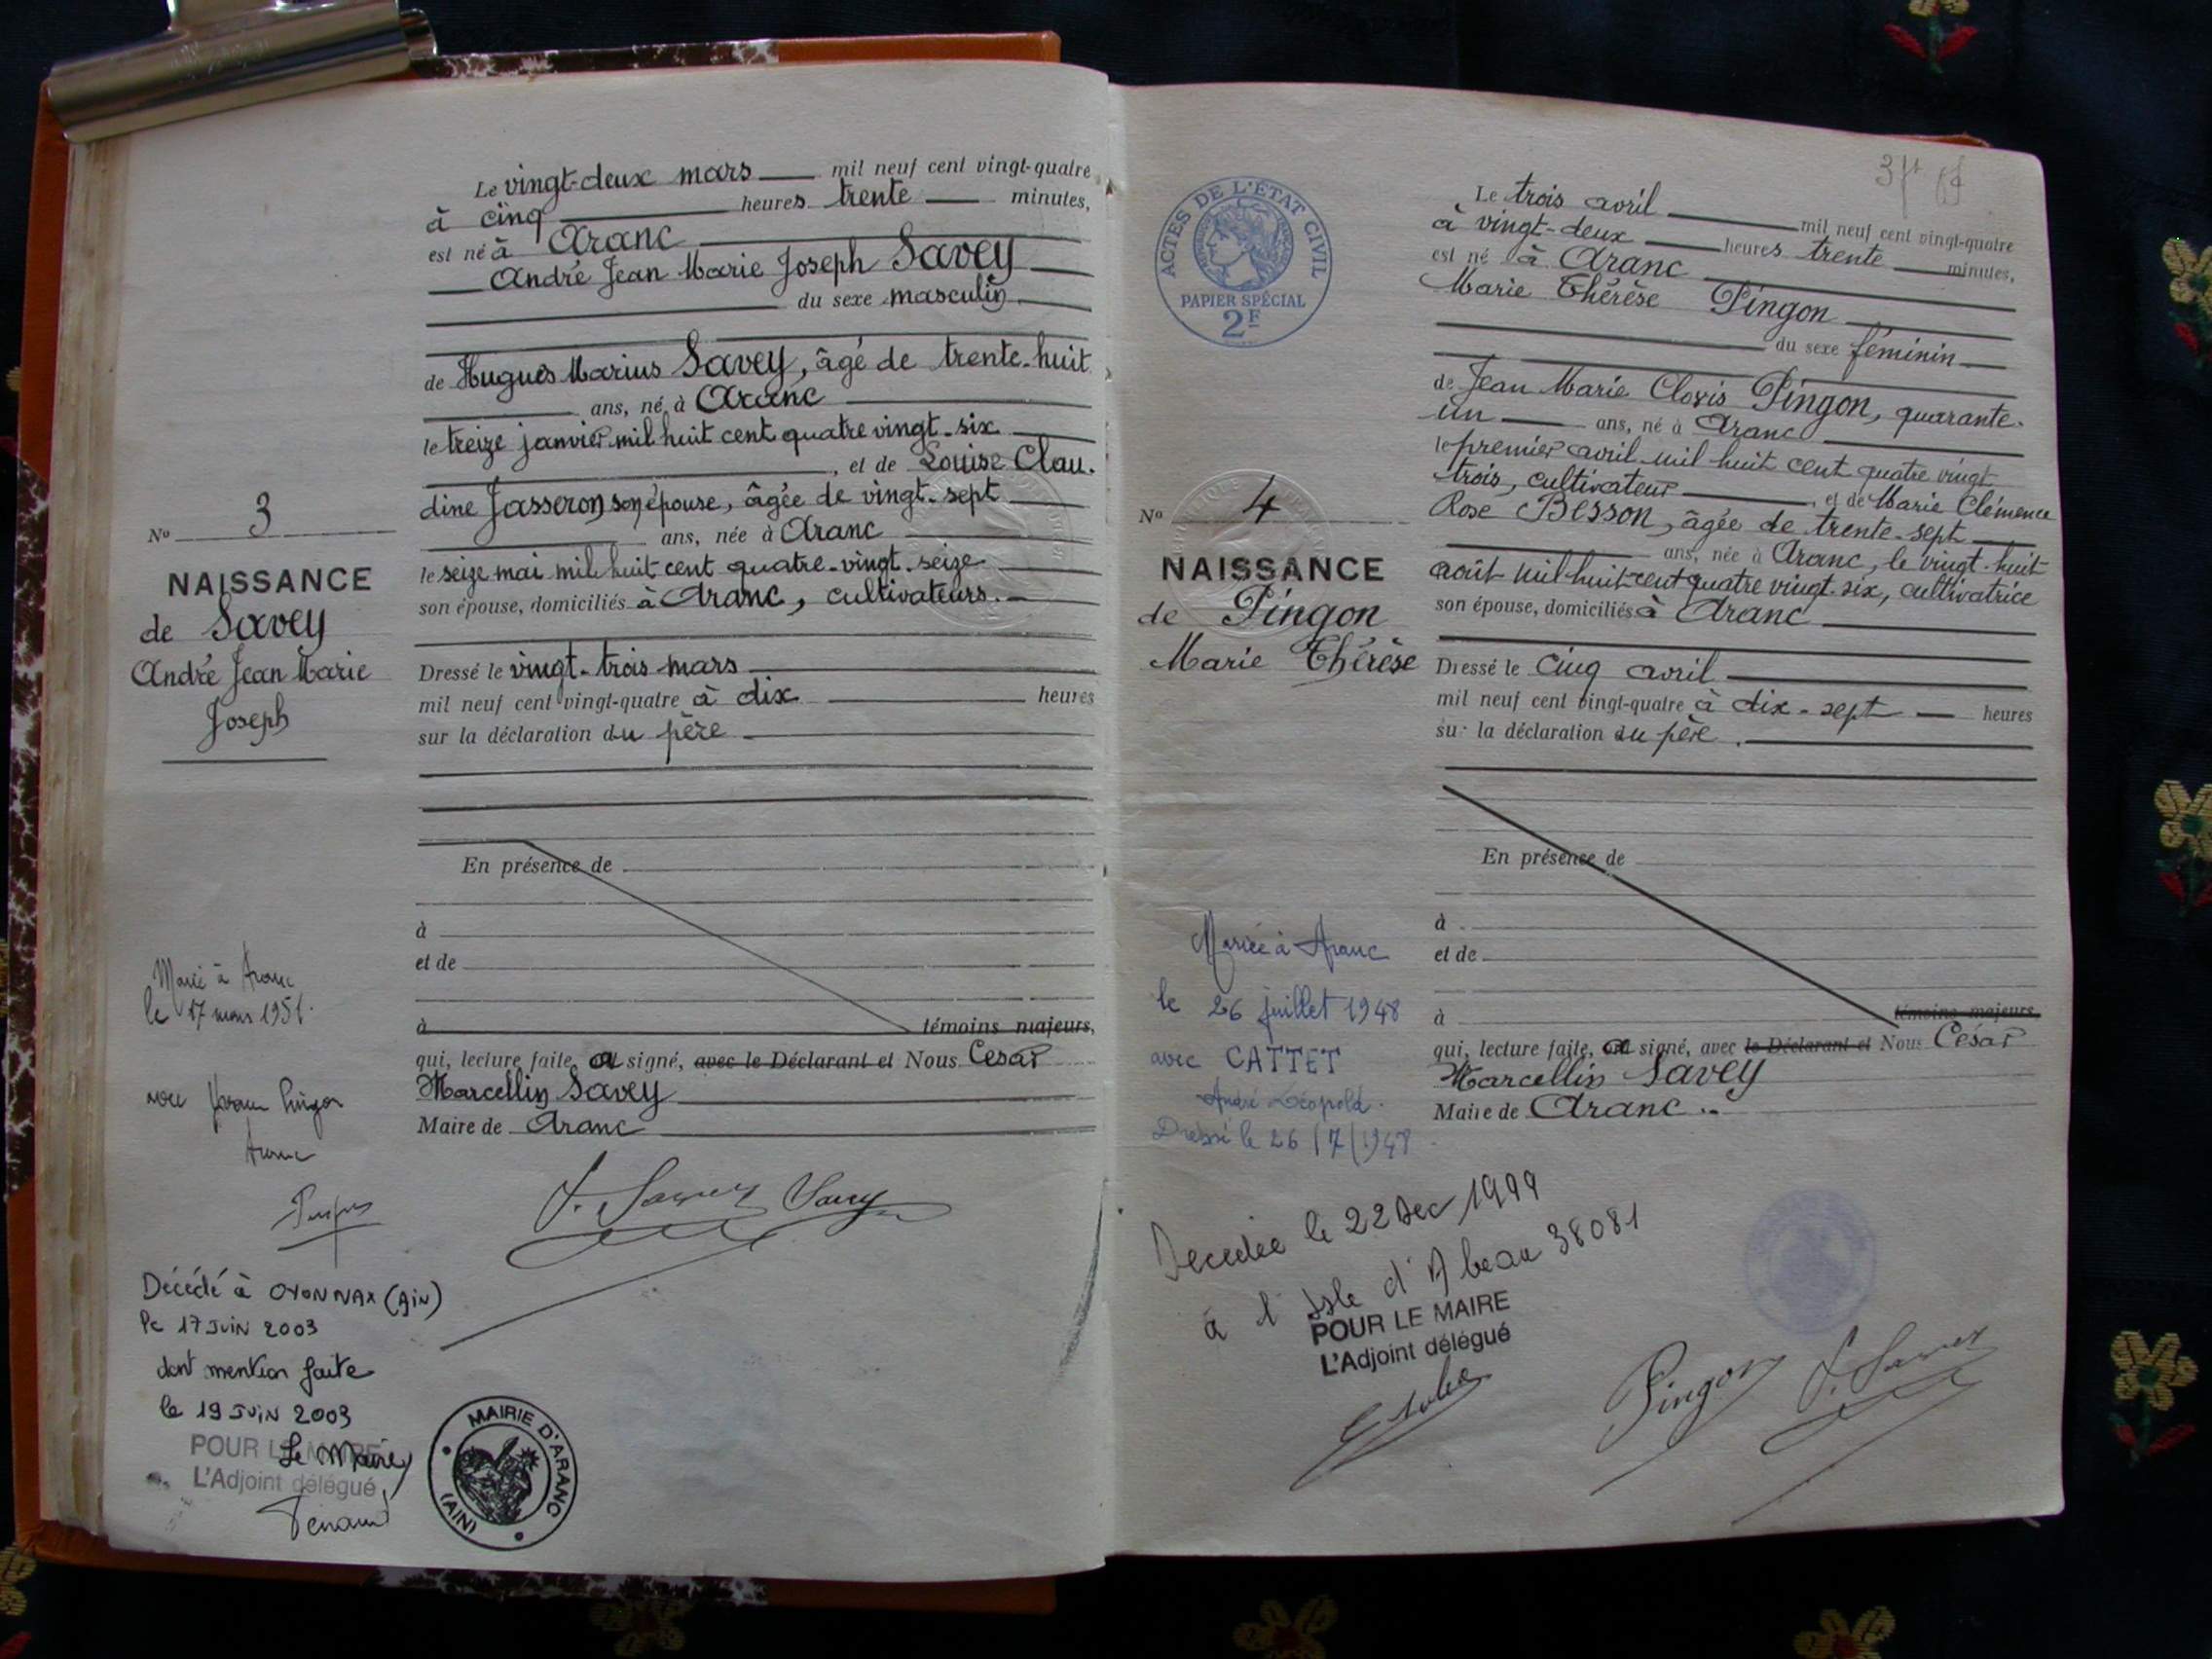 Le vingt-deux mars mil neuf cent vingt-quatre
à cinq heures trente minutes,
est né à Aranc
André Jean Marie Joseph Savey
du sexe masculin
de Hugues Marius Savey, âgé de trente-huit
ans, né à Aranc
le treize janvier mil huit cent quatre vingt-six
, et de Louise Clau-
dine Jasseron son épouse, âgée de vingt-sept
ans, née à Aranc
le seize mai mil huit cent quatre-vingt-seize
son épouse, domiciliés à Aranc, cultivateurs.
Dressé le vingt-trois mars
mil neuf cent vingt-quatre à dix heures
sur la déclaration du père
En présence de
à
et de
à témoins majeurs,
qui, lecture faite, a signé, avec le Déclarant et Nous César
Marcellin Savey
Maire de Aranc
No 3
NAISSANCE
de Savey
André Jean Marie
Joseph
Marié à Aranc
le 17 mars 1951.
avec Pingon
Aranc
Décédé à OYONNAX (Ain)
le 17 Juin 2003
dont mention faite
le 19 Juin 2003
POUR LE MAIRE
Le Maire
L'Adjoint délégué
MAIRIE D'ARANC
(AIN)
ACTES DE L'ÉTAT CIVIL
PAPIER SPÉCIAL
2F
Le trois avril mil neuf cent vingt-quatre
à vingt-deux heures trente minutes,
est né à Aranc
Marie Thérèse Pingon
du sexe féminin
de Jean Marie Clovis Pingon, quarante-
un ans, né à Aranc
le premier avril mil huit cent quatre vingt
trois, cultivateur, et de Marie Clémence
Rose Besson, âgée de trente-sept
ans, née à Aranc, le vingt-huit
août mil-huit-cent quatre vingt-six, cultivatrice
son épouse, domiciliés à Aranc
Dressé le cinq avril
mil neuf cent vingt-quatre à dix-sept heures
sur la déclaration du père.
En présence de
à
et de
à témoins majeurs,
qui, lecture faite, a signé, avec le Déclarant et Nous César
Marcellin Savey
Maire de Aranc
No 4
NAISSANCE
de Pingon
Marie Thérèse
Mariée à Aranc
le 26 juillet 1948
avec CATTET
André Léopold.
Dressé le 26/7/1948
Décédée le 22 Dec 1999
à l'Isle d'Abeau 38081
POUR LE MAIRE
L'Adjoint délégué
Pingon